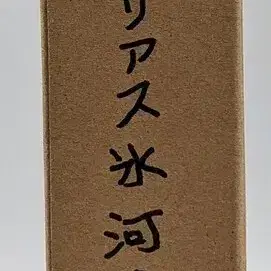 リアス氷河